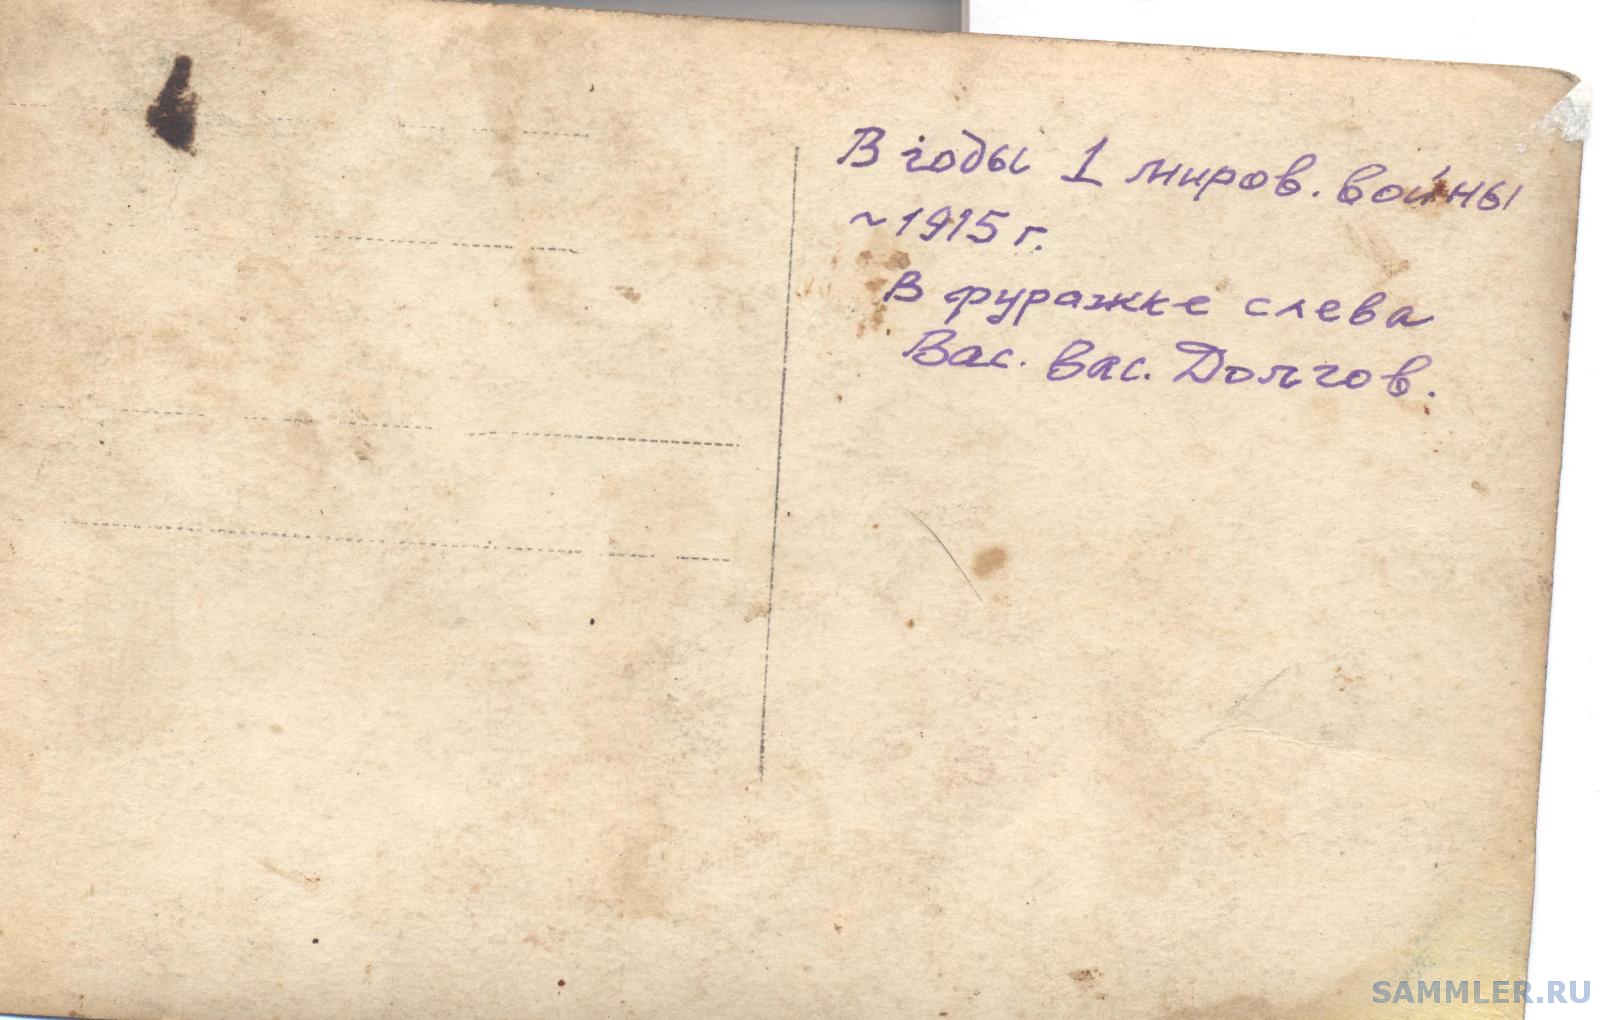 В годы 1 миров. войны
~1915 г.
В фуражке слева
Вас. Вас. Долгов.
SAMMLER.RU